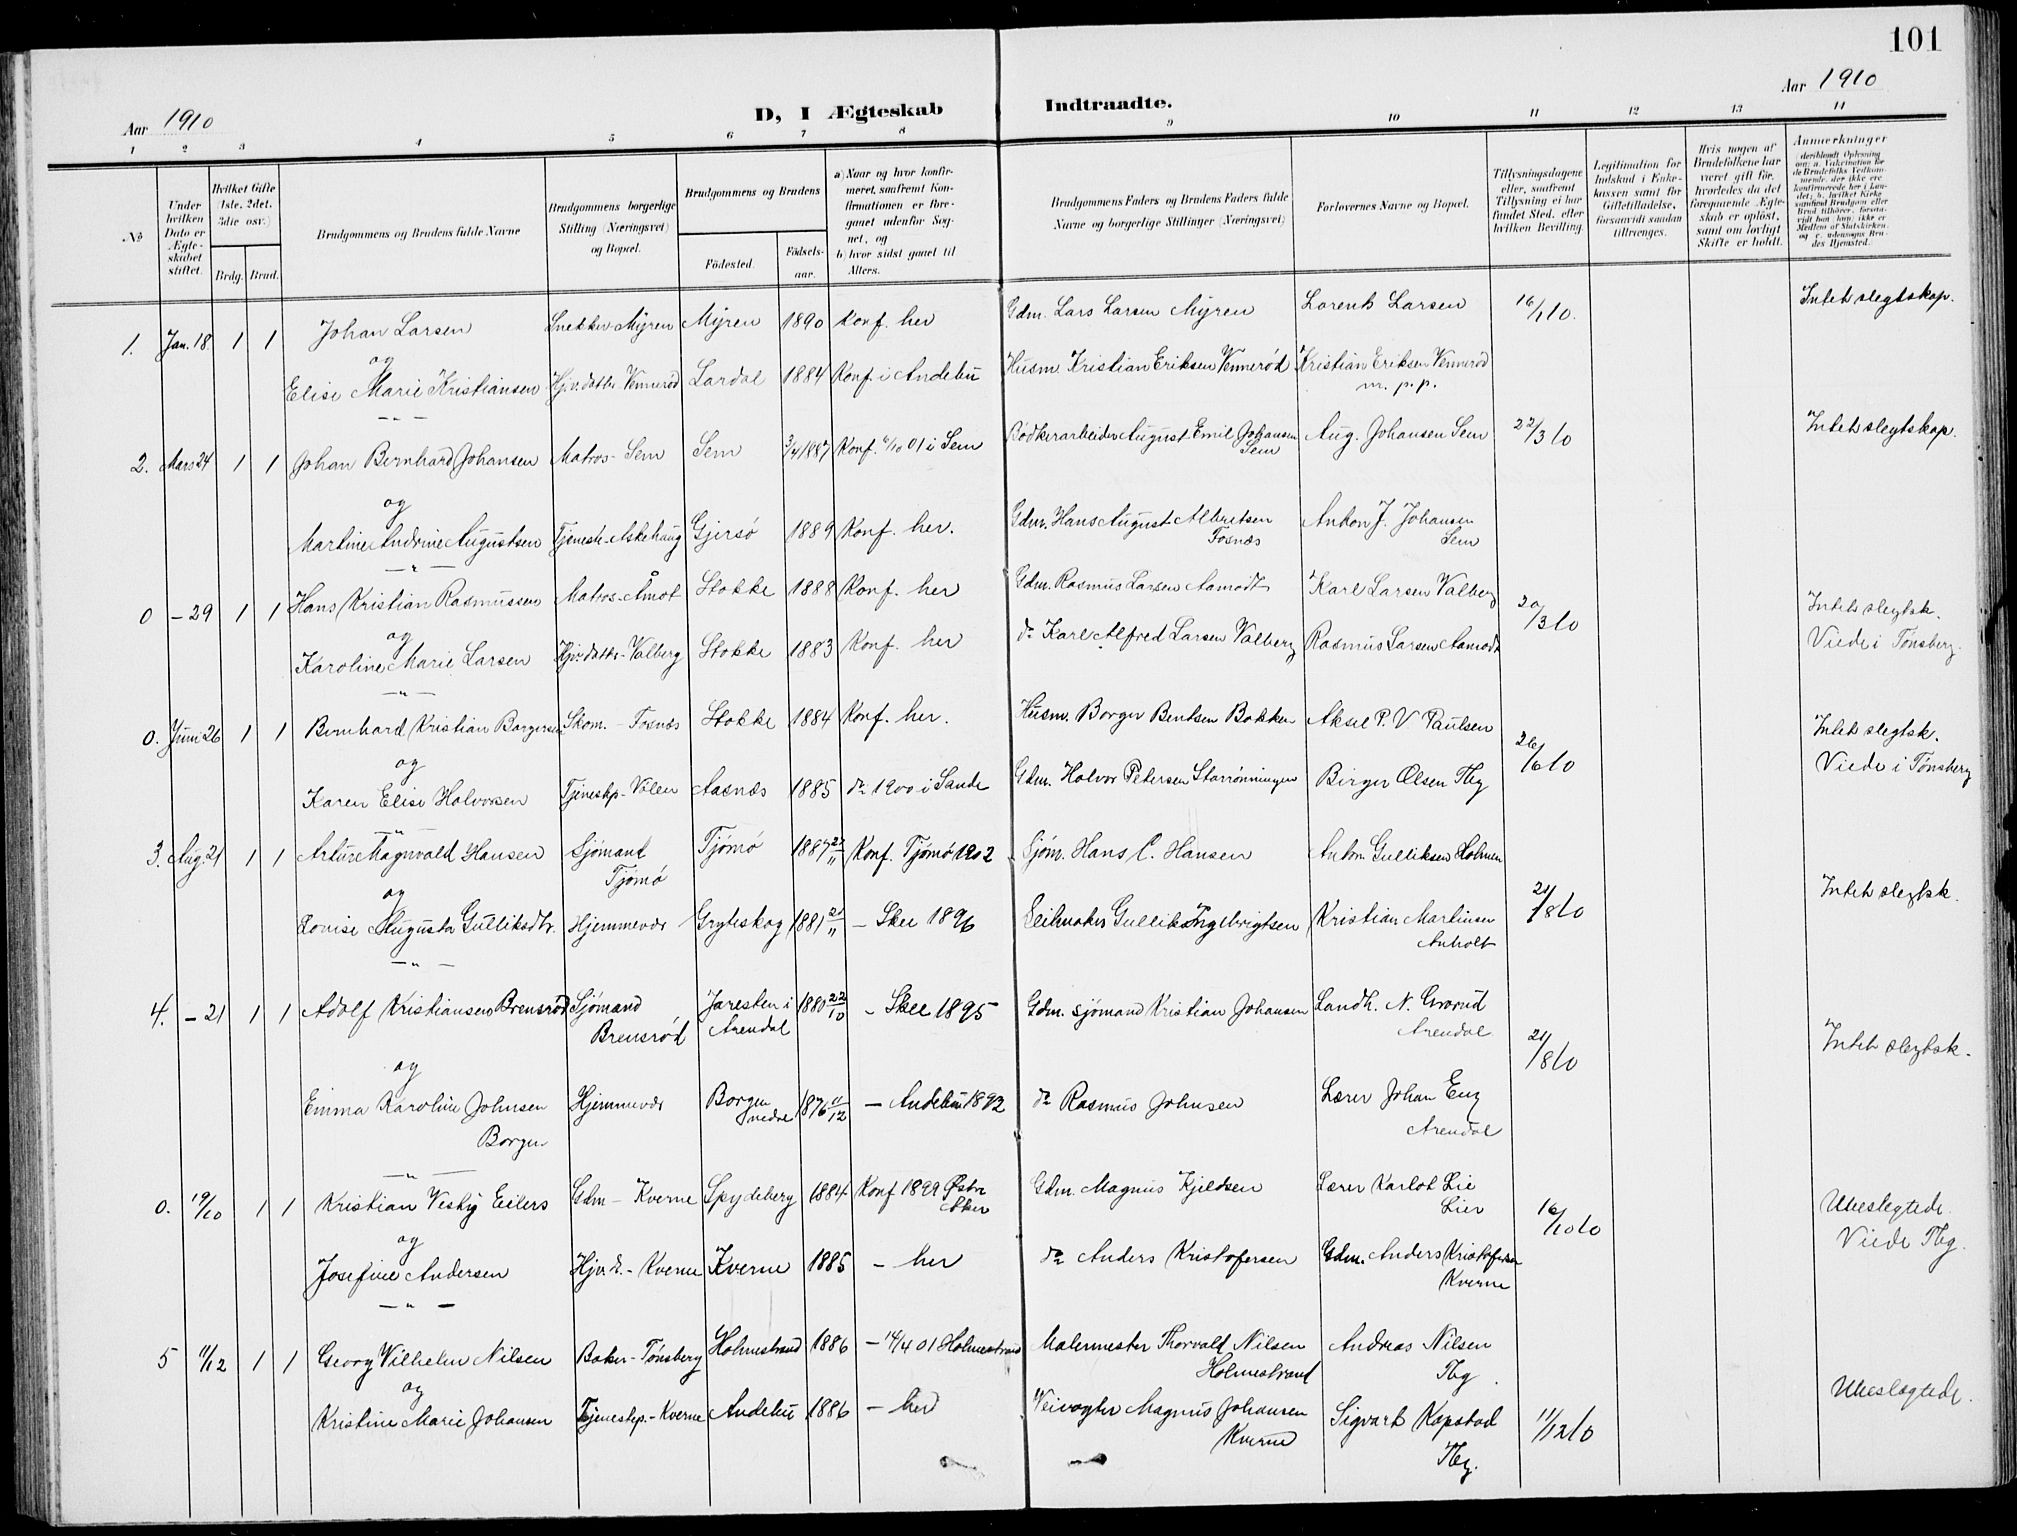 101
Aar 1910
D, I Ægteskab Indtraadte.
Aar 1910
1 2 3 4 5 6 7 8 9 10 11 12 13 14
№
Under hvilken Dato er Ægteskabet stiftet.
Hvilket Gifte (1ste, 2det, 3die osv.)
Brdg. Brud.
Brudgommens og Brudens fulde Navne
Brudgommens borgerlige Stilling (Næringsvei) og Bopæl.
Brudgommens og Brudens
Fødested. Fødselsaar.
a) Naar og hvor konfirmeret, saafremt Konfirmationen er foregaaet udenfor Sognet, og
b) hvor sidst gaaet til Alters.
Brudgommens Faders og Brudens Faders fulde Navne og borgerlige Stillinger (Næringsvei)
Forlovernes Navne og Bopæl.
Tillysningsdagene eller, saafremt Tillysning ei har fundet Sted, efter hvilken Bevilling.
Legitimation for Indskud i Enkekassen samt for Giftetilladelse, forsaavidt saadan tiltrænges.
Hvis nogen af Brudefolkene har været gift før, hvorledes da det foregaaende Ægteskab er opløst, samt om lovligt Skifte er holdt.
Anmærkninger
1. Jan. 18. 1 1 Johan Larsen Snekker Myren Myren 1890 Konf. her Gdm. Lars Larsen Myren Lorents Larsen 16/1 10. Intet slegtskap.
og
Elise Marie Kristiansen Hjv. datter Vennerød Lardal 1884 Konf. i Andebu Husm. Kristian Eriksen Vennerød Kristian Eriksen Vennerød
m. p. p.
2. Mars 24 1 1 Johan Bernhard Johansen Matros - Sem Sem 3/4 1887 Konf. 6/10 01 i Sem Bødkerarbeider August Emil Johansen Sem Aug. Johansen Sem 22/3 10 Intet slegtskap.
og
Martine Andrine Augustsen Tjenest. Askehaug Gjersø 1889 Konf. her. Gdm. Hans August Albertsen Fosnæs Anton J. Johansen Sem
0 - 29 1 1 Hans Kristian Rasmussen Matros - Åmot Stokke 1888 Konf. her Gdm. Rasmus Larsen Aamodt Karl Larsen Valberg 20/3 10 Intet slegtsk.
og
Karoline Marie Larsen Hjv. datter - Valberg Stokke 1883 Konf. her do Karl Alfred Larsen Valberg Rasmus Larsen Aamodt Viede i Tønsberg.
0. Juni 26 1 1 Bernhard Kristian Borgersen Skom. - Fosnæs Stokke 1884 Konf. her. Husm. Borger Bentsen Bakken Aksel P. V. Paulsen 26/6 10 Intet slegtsk.
og
Karen Elise Halvorsen Tjenestp. - Volen Aasnæs 1885 do 1900 i Sande Gdm. Halvor Petersen Starrønningen Birger Olsen Tbg Viede i Tønsberg
3. Aug. 21 1 1 Arture Magnvald Hansen Sjømand Tjømø Tjømø 1887 Konf. Tjømø 1902 Sjøm. Hans C. Hansen Anton Gulliksen Holmen 21/8 10 Intet slegtsk.
og
Lovise Augusta Gulliksdtr. Hjemmevær Gryteskog 1881 - Skee 1896 Gullik Ingebrigtsen Kristian Martinsen Anholt
4. - 21 1 1 Adolf Kristiansen Brensrød Sjømand Brensrød Jaresten i Arendal 1880 22/10 - Skee 1895 Gdm. sjømand Kristian Johansen Landh. N. Grorud Arendal 21/8 10 Intet slegtsk.
og
Emma Karoline Johnsen Borgen Hjemmevær Borgen nedre 1876 11/12 - Andebu 1892 do Rasmus Johnsen Lærer Johan Eng Arendal
0. 19/10 1 1 Kristian Vesby Eilers Gdm - Kverne Spydeberg 1884 Konf 1899 Østre Aker Gdm. Magnus Kjeldsen Lærer Karlot Lie Lier 16/10 10 Ubeslegtede.
og
Josefine Andersen Hjv. d. - Kverne Kverne 1885 - her do Anders Kristofersen Gdm. Anders Kristofersen Kverne Viede Tbg.
5 11/12 1 1 Georg Vilhelm Nilsen Baker - Tønsberg Holmestrand 1886 - 14/4 01 Holmestrand Malermester Thorvald Nilsen Holmestrand Andreas Nilsen Tbg. 11/12 10 Ubeslægtede.
og
Kristine Marie Johansen Tjenestep. - Kverne Andebu 1886 - her Veivogter Magnus Johansen Kverne Sigvart Kopstad Tbg.